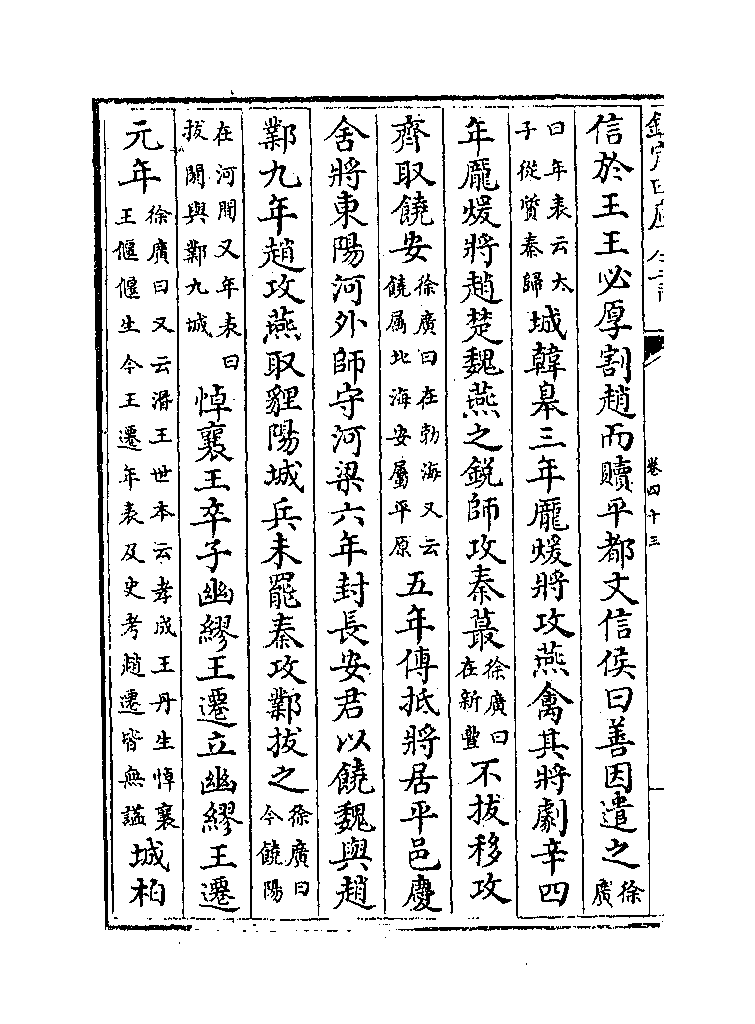 卷四十三
信於王王必厚割趙而贖平都文信侯曰善因遣之徐廣
曰年表云太子從質秦歸城韓皋三年龎煖將攻燕禽其將劇辛四
年龎煖將趙楚魏燕之鋭師攻秦蕞徐廣曰在新豐不拔移攻
齊取饒安徐廣曰在勃海又云饒属北海安屬平原五年傅抵將居平邑慶
舍將東陽河外師守河梁六年封長安君以饒魏與趙
鄴九年趙攻燕取貍陽城兵未罷秦攻鄴拔之徐廣曰今饒陽
在河間又年表曰拔閼與鄴九城悼襄王卒子幽繆王遷立幽繆王遷
元年徐廣曰又云湣王世本云孝成王丹生悼襄王偃偃生今王遷年表及史考趙遷皆無謚城柏